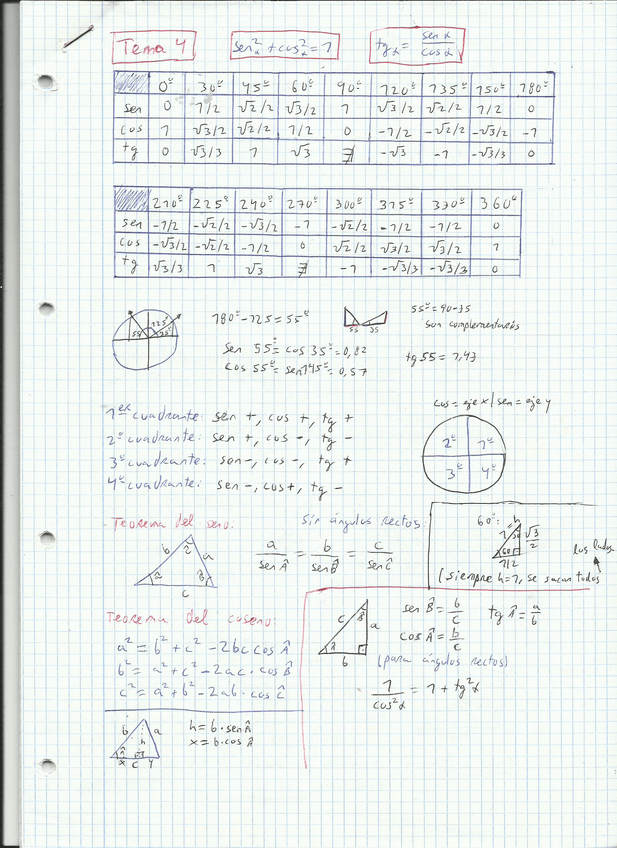 Tema 4
sen²α + cos²α = 1
tgα = senα / cosα
0º 30º 45º 60º 90º 120º 135º 150º 180º
sen 0 1/2 √2/2 √3/2 1 √3/2 √2/2 1/2 0
cos 1 √3/2 √2/2 1/2 0 -1/2 -√2/2 -√3/2 -1
tg 0 √3/3 1 √3 ∄ -√3 -1 -√3/3 0
210º 225º 240º 270º 300º 315º 330º 360º
sen -1/2 -√2/2 -√3/2 -1 -√2/2 -1/2 -1/2 0
cos -√3/2 -√2/2 -1/2 0 √2/2 √3/2 √3/2 1
tg √3/3 1 √3 ∄ -1 -√3/3 -√3/3 0
180º-125=55º
55 35
55º=90-35
son complementarios
125º
55
sen 55º=cos 35º=0,82
cos 55º=sen145º=0,57
tg 55 = 1,43
cos = eje x / sen = eje y
1er cuadrante: sen +, cos +, tg +
2º cuadrante: sen +, cos -, tg -
3º cuadrante: sen -, cos -, tg +
4º cuadrante: sen -, cos+, tg -
2º 1º
3º 4º
Teorema del seno:
Sin ángulos rectos:
a / sen Â = b / sen B̂ = c / sen Ĉ
b a
c
60º: h
1 30 √3/2
60
1/2
(siempre h=1, se sacan todos
los lados
Teorema del coseno:
a² = b² + c² - 2bc cos Â
b² = a² + c² - 2ac · cos B̂
c² = a² + b² - 2ab · cos Ĉ
c B̂ a
Â
b
sen B̂ = b/c
tg Â = a/b
cos Â = b/c
(para ángulos rectos)
1 / cos²α = 1 + tg²α
b a
h
Â
x c y
h = b · sen Â
x = b · cos Â